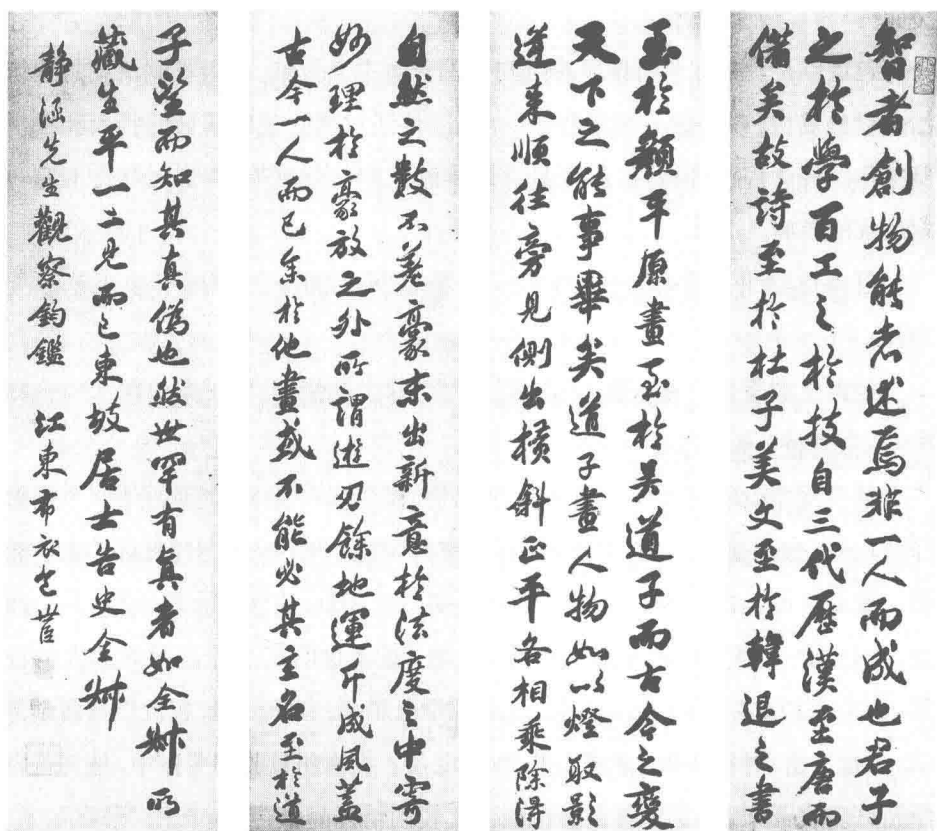 智者創物能者述焉非一人而成也君子
之於學百工之於技自三代歷漢至唐而
備矣故詩至於杜子美文至於韓退之書
至於顏平原畫至於吳道子而古今之變
天下之能事畢矣道子畫人物如以燈取影
逆來順往旁見側出橫斜正平各相乘除得
自然之數不差豪末出新意於法度之中寄
妙理於豪放之外所謂遊刃餘地運斤成風蓋
古今一人而已余於他畫或不能必其主名至於道
子望而知其真偽也然世罕有真者如全叔所
藏生平一二見而已東坡居士告史全叔
静涵先生觀察鈞鑑 江東布衣包